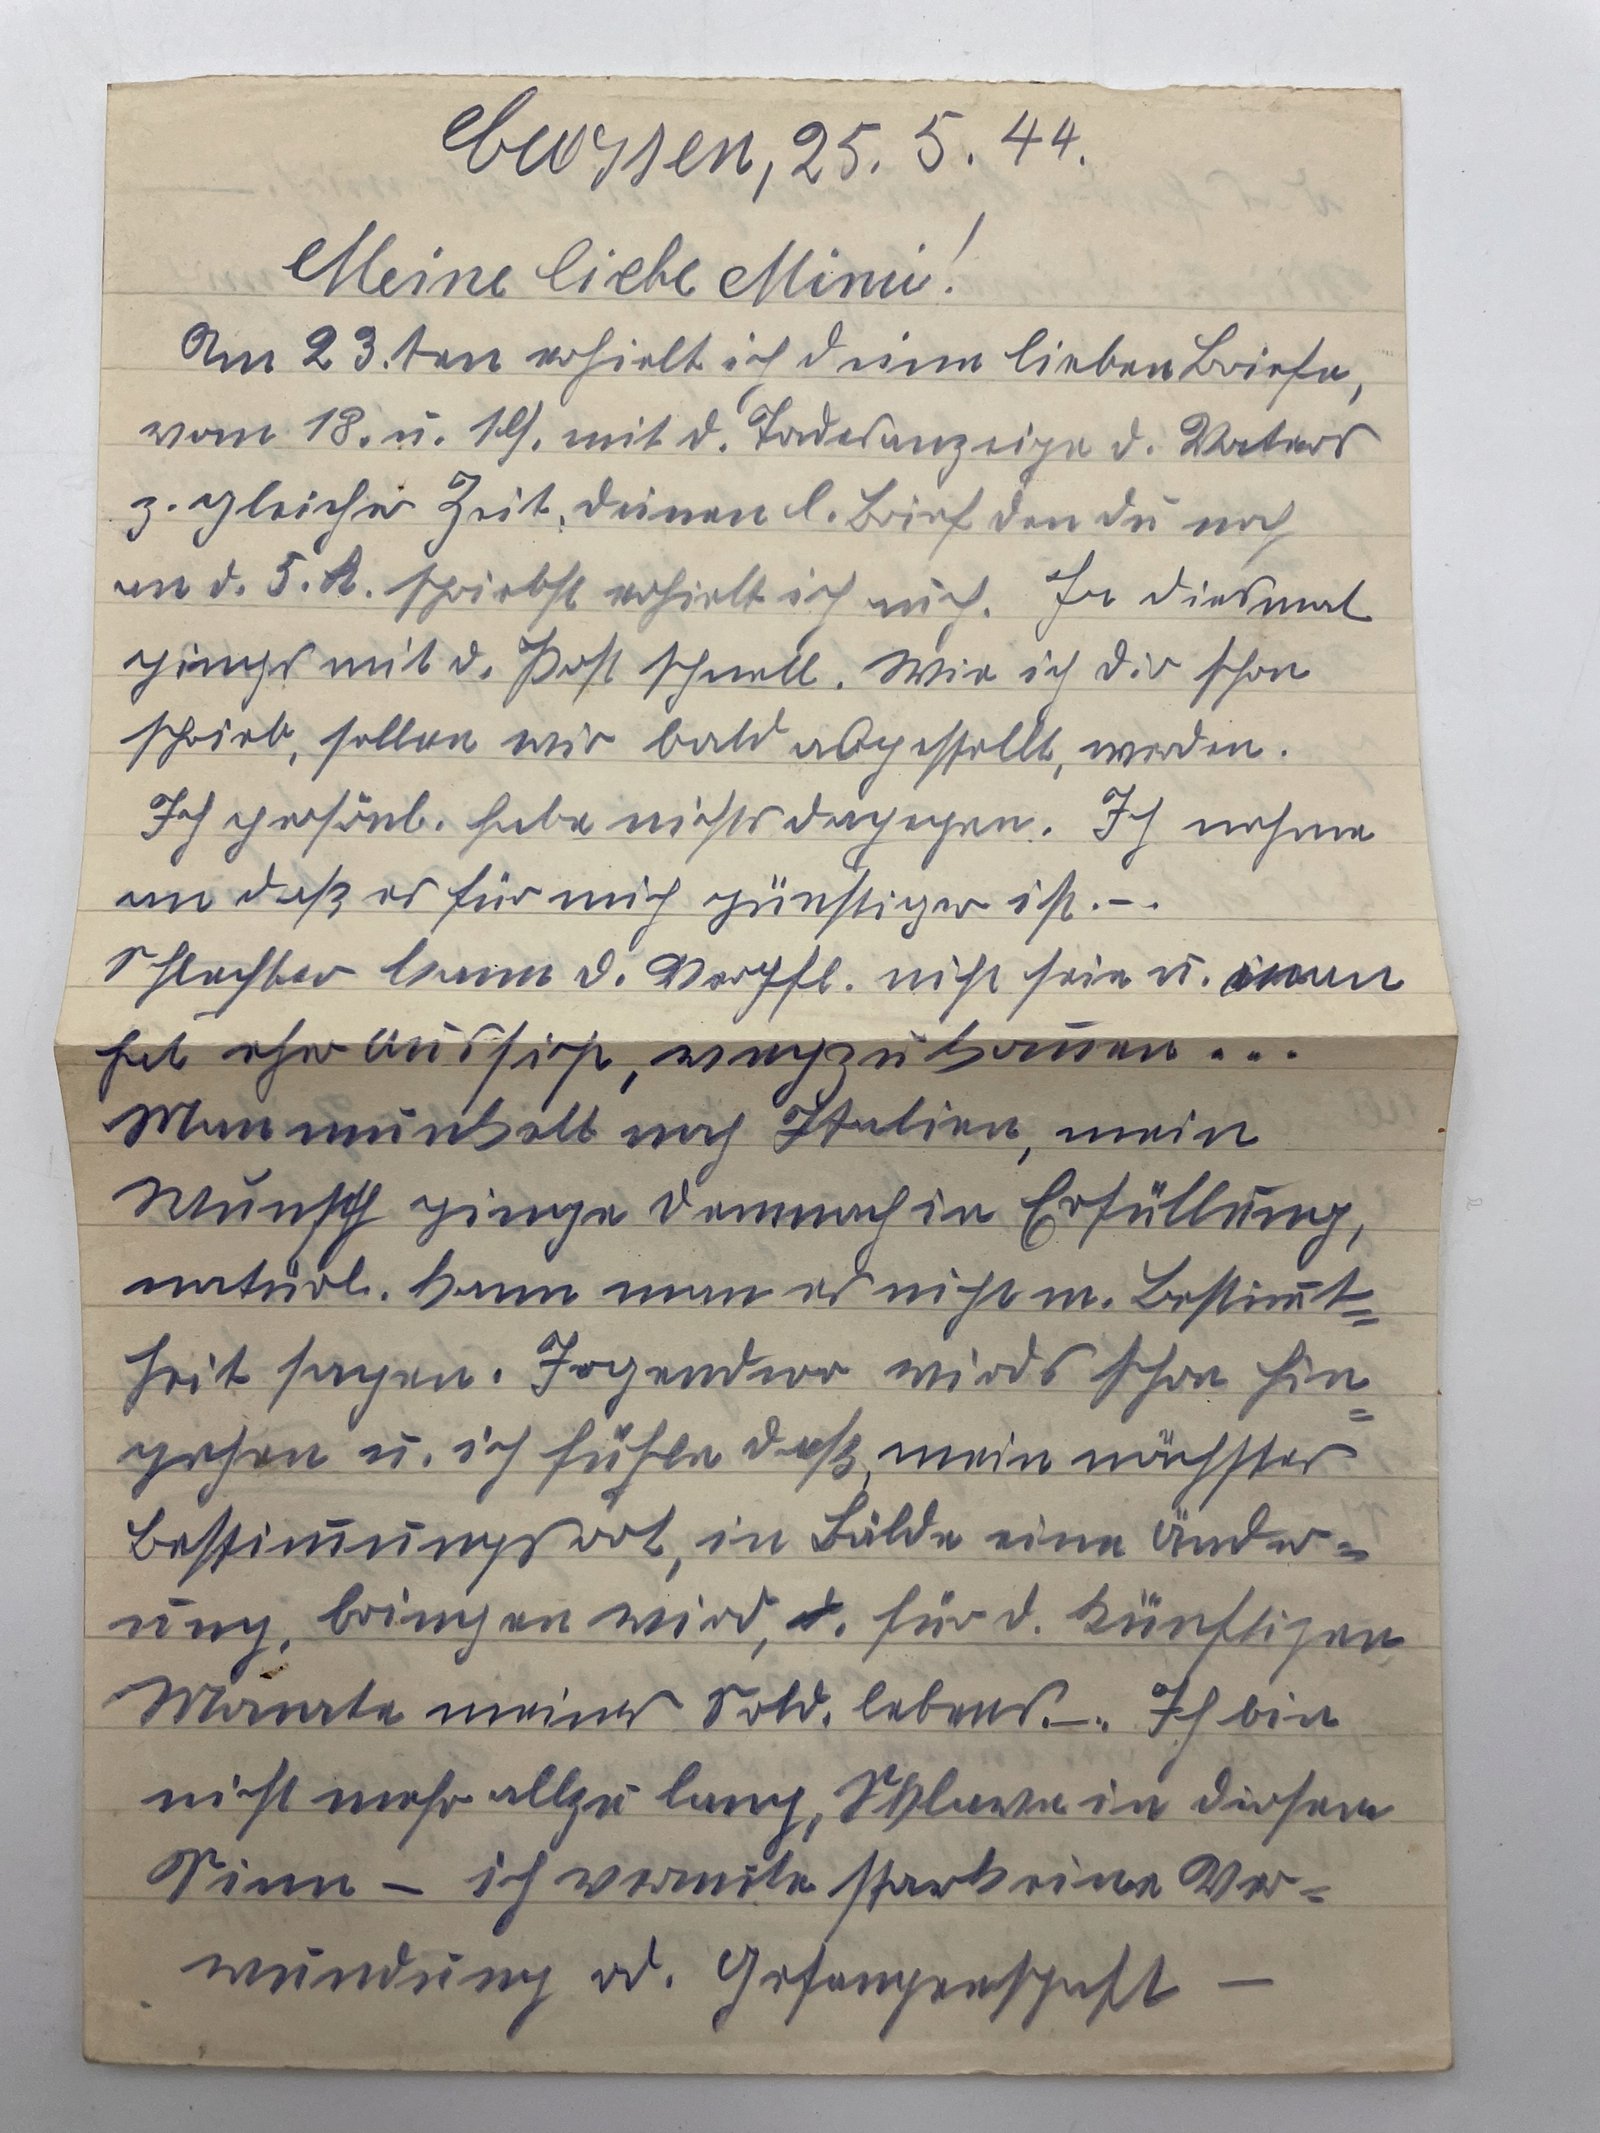 25. 5. 44.
Meine liebe Mimi!
Am 23.ten erhielt ich deine lieben Briefe,
vom 18. u. 19. mit d. Todesanzeige d. Vaters
z. gleicher Zeit, deinen l. Brief den du noch
an d. 5. K. schriebst erhielt ich auch. Ja diesmal
gings mit d. Post schnell. Wie ich dir schon
schrieb, sollen wir bald abgestellt, werden.
Ich persönl. habe nichts dagegen. Ich nehme
an daß es für mich günstiger ist.–.
Schlechter kann d. Verpfl. nicht sein u. man
hat eher Aussicht, wegzukom̄en...
Man munkelt nach Italien, mein
Wunsch ginge demnach in Erfüllung,
natürl. kann man es nicht m. Bestim̄t=
heit sagen. Irgendwo wirds schon hin=
gehen u. ich fühle daß, mein nächster
Bestim̄ungsort, in Bälde eine Änder=
ung, bringen wird, für d. künftigen
Monate meines Sold. lebens.–. Ich bin
nicht mehr allzu lang, Sklave in diesem
Sinn – ich vermute stark eine Ver=
wundung od. Gefangenschaft –